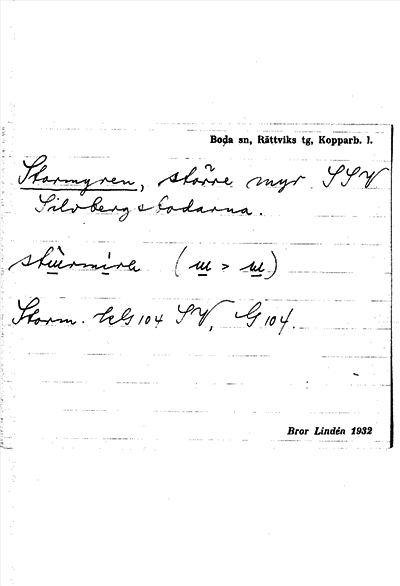 Boda sn, Rättviks tg, Kopparb. l.
Stormyren, större myr SSV
Silvbergsbodarna.
Storm. kbl 104 SV, G 104.
Bror Lindén 1932